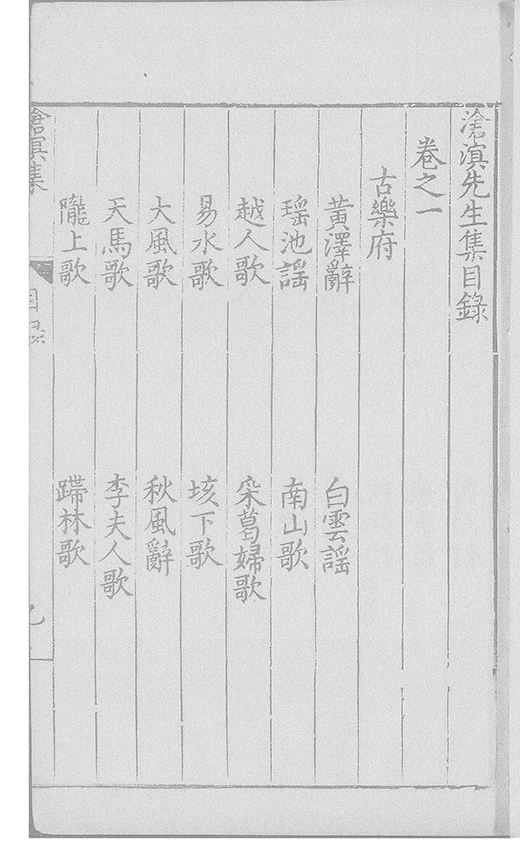 滄溟先生集目錄
卷之一
古樂府
黃澤辭 白雲謠
瑤池謠 南山歌
越人歌 采葛婦歌
易水歌 垓下歌
大風歌 秋風辭
天馬歌 李夫人歌
隴上歌 蹛林歌
滄溟集 目录